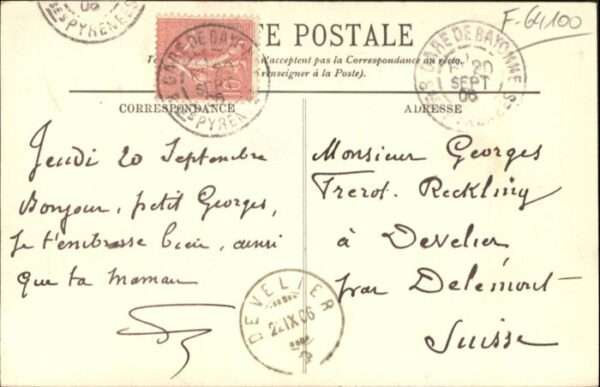 F-64100
CARTE POSTALE
n'acceptent pas la Correspondance au recto.
(renseigner à la Poste).
CORRESPONDANCE
ADRESSE
GARE DE BAYONNE
20
SEPT
06
GARE DE BAYONNE
BSES PYRENEES
06
BSES PYRENEES
Jeudi 20 Septembre
Bonjour, petit Georges,
Je t'embrasse bien, ainsi
que ta maman
Monsieur Georges
Frerot. Reckling
à Develier
par Delémont
Suisse
DEVELIER
22.IX.06